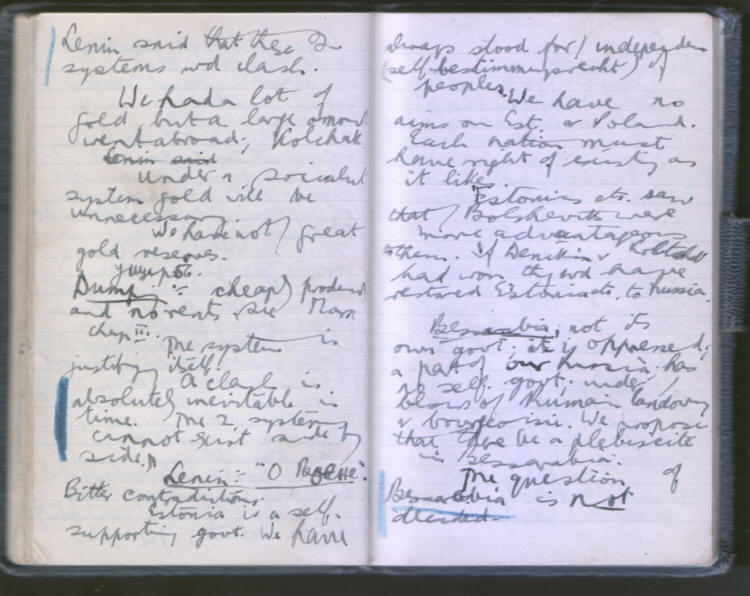 Lenin said that these 2
systems wd clash.
We had a lot of
gold but a large amount
went abroad; Kolchak.
Lenin said
Under a socialist
system gold will be
unnecessary.
We have not great
gold reserves.
Dump :- cheap produce
and no rents. See Marx
chap III.
The system is
justifying itself.
A clash is
absolutely inevitable in
time. The 2 systems
cannot exist side by
side."
Lenin :- "О Войне".
Bitter contradictions.
Estonia is a self-
supporting govt. We have
always stood for independen
(selfbestimmungsrecht) of
peoples. We have no
aims on Est. or Poland.
Each nation must
have right of existing as
it likes.
Estonia etc. saw
that Bolsheviks were
more advantageous
them. If Denikin & Koltchak
had won they wd have
restored Estonia etc. to Russia.
Bessarabia, not its
own govt; it is oppressed;
a part of our Russia; has
no self. govt; under
blows of Rumain landowng
& bourgeoisie. We propose
that there be a plebiscite
in Bessarabia.
The question of
Bessarabia is not
decided.